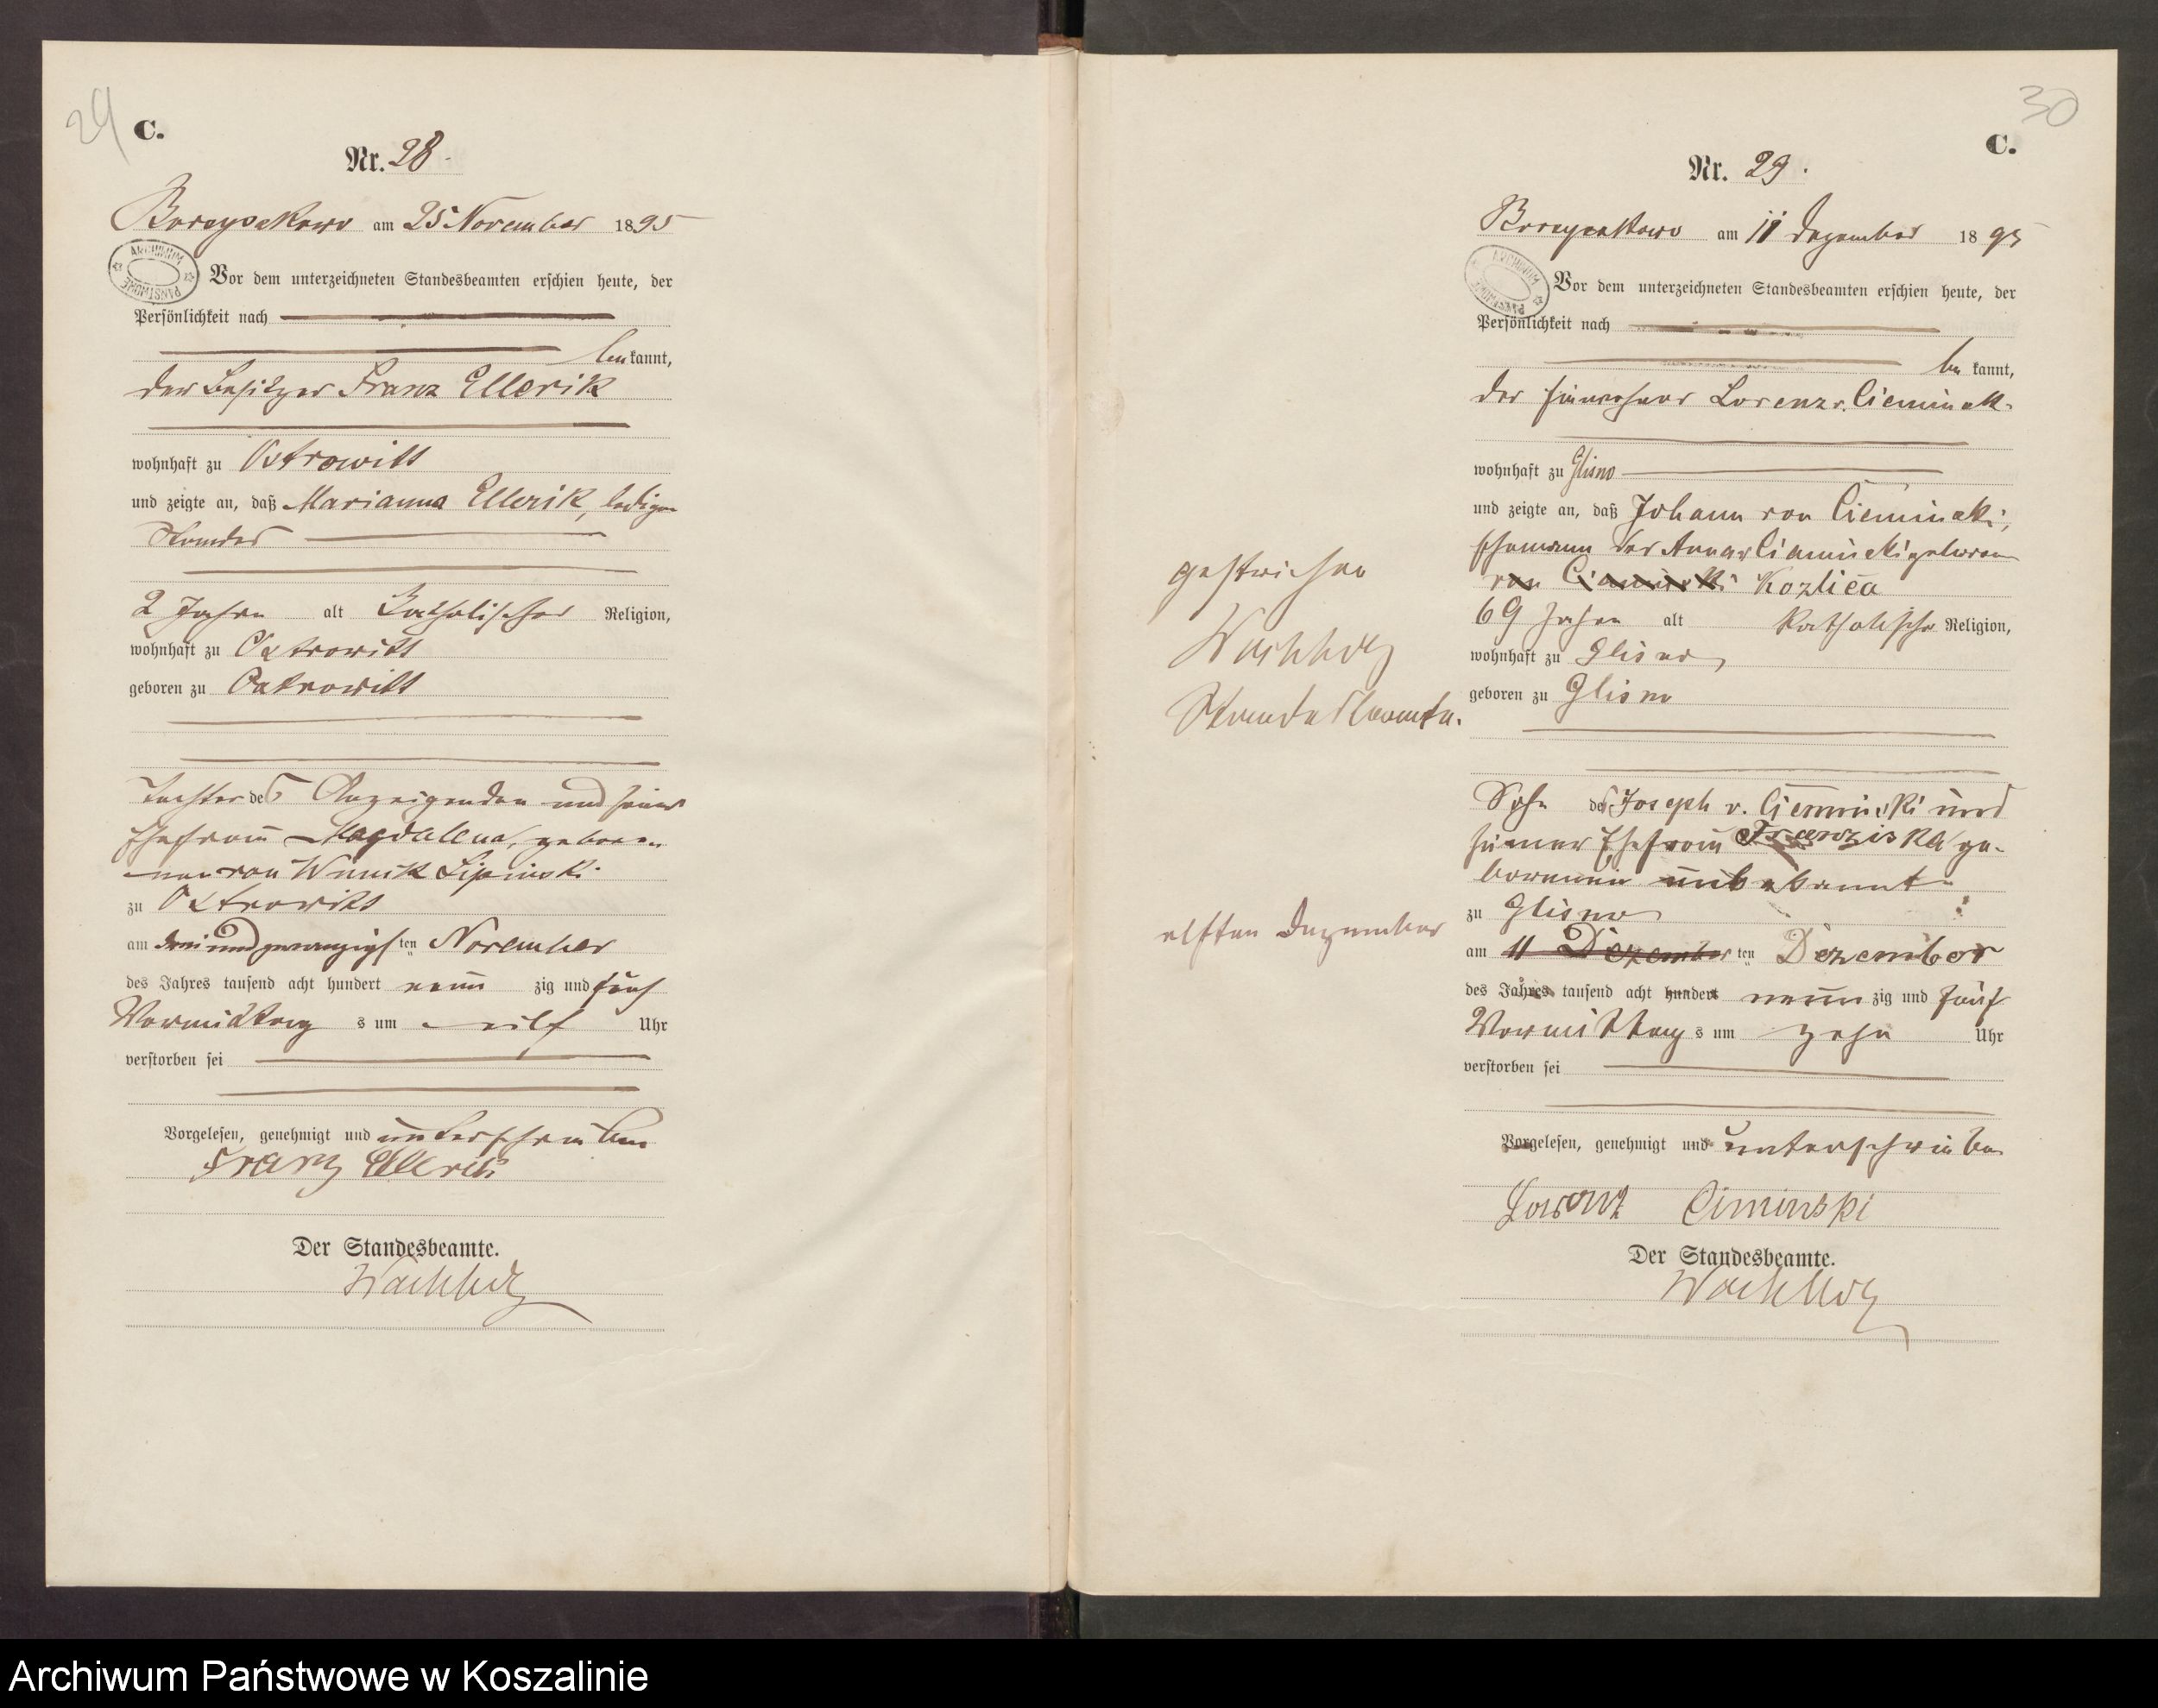 29
C.
Nr. 28.
Borzyskowo am 25 November 1895
ARCHIWUM PAŃSTWOWE
Vor dem unterzeichneten Standesbeamten erschien heute, der
Persönlichkeit nach
bekannt,
der Besitzer Franz Ellerik
wohnhaft zu Ostrowitt
und zeigte an, daß Marianna Ellerik, ledigen
Standes
2 Jahre alt Katholischer Religion,
wohnhaft zu Ostrowitt
geboren zu Ostrowitt
Tochter des Anzeigenden und seiner
Ehefrau Magdalena, gebore-
nen von Wnuk Lipinski
zu Ostrowitt
am dreiundzwanzigsten November
des Jahres tausend acht hundert neunzig und fünf
Vormittags um elf Uhr
verstorben sei
Vorgelesen, genehmigt und unterschrieben
Franz Ellerik
Der Standesbeamte.
Wachholz
30
C.
Nr. 29.
Borzyskowo am 11 Dezember 1895
ARCHIWUM PAŃSTWOWE
Vor dem unterzeichneten Standesbeamten erschien heute, der
Persönlichkeit nach
bekannt,
der Einwohner Lorenz v. Cieminski
wohnhaft zu Glisno
und zeigte an, daß Johann von Cieminski,
Ehemann der Anna v Cieminski geboren
von Cieminski Kozlica
69 Jahre alt Katholischer Religion,
wohnhaft zu Glisno,
geboren zu Glisno
gestrichen
Wachholz
Standesbeamte.
Sohn des Joseph v. Cieminski und
seiner Ehefrau Franziska ge-
borenen unbekannt
zu Glisno
elften Dezember
am 11 Dezember ten Dezember
des Jahres tausend acht hundert neunzig und fünf
Vormittags um zehn Uhr
verstorben sei
Vorgelesen, genehmigt und unterschrieben
Lorenz Ciminski
Der Standesbeamte.
Wachholz
Archiwum Państwowe w Koszalinie